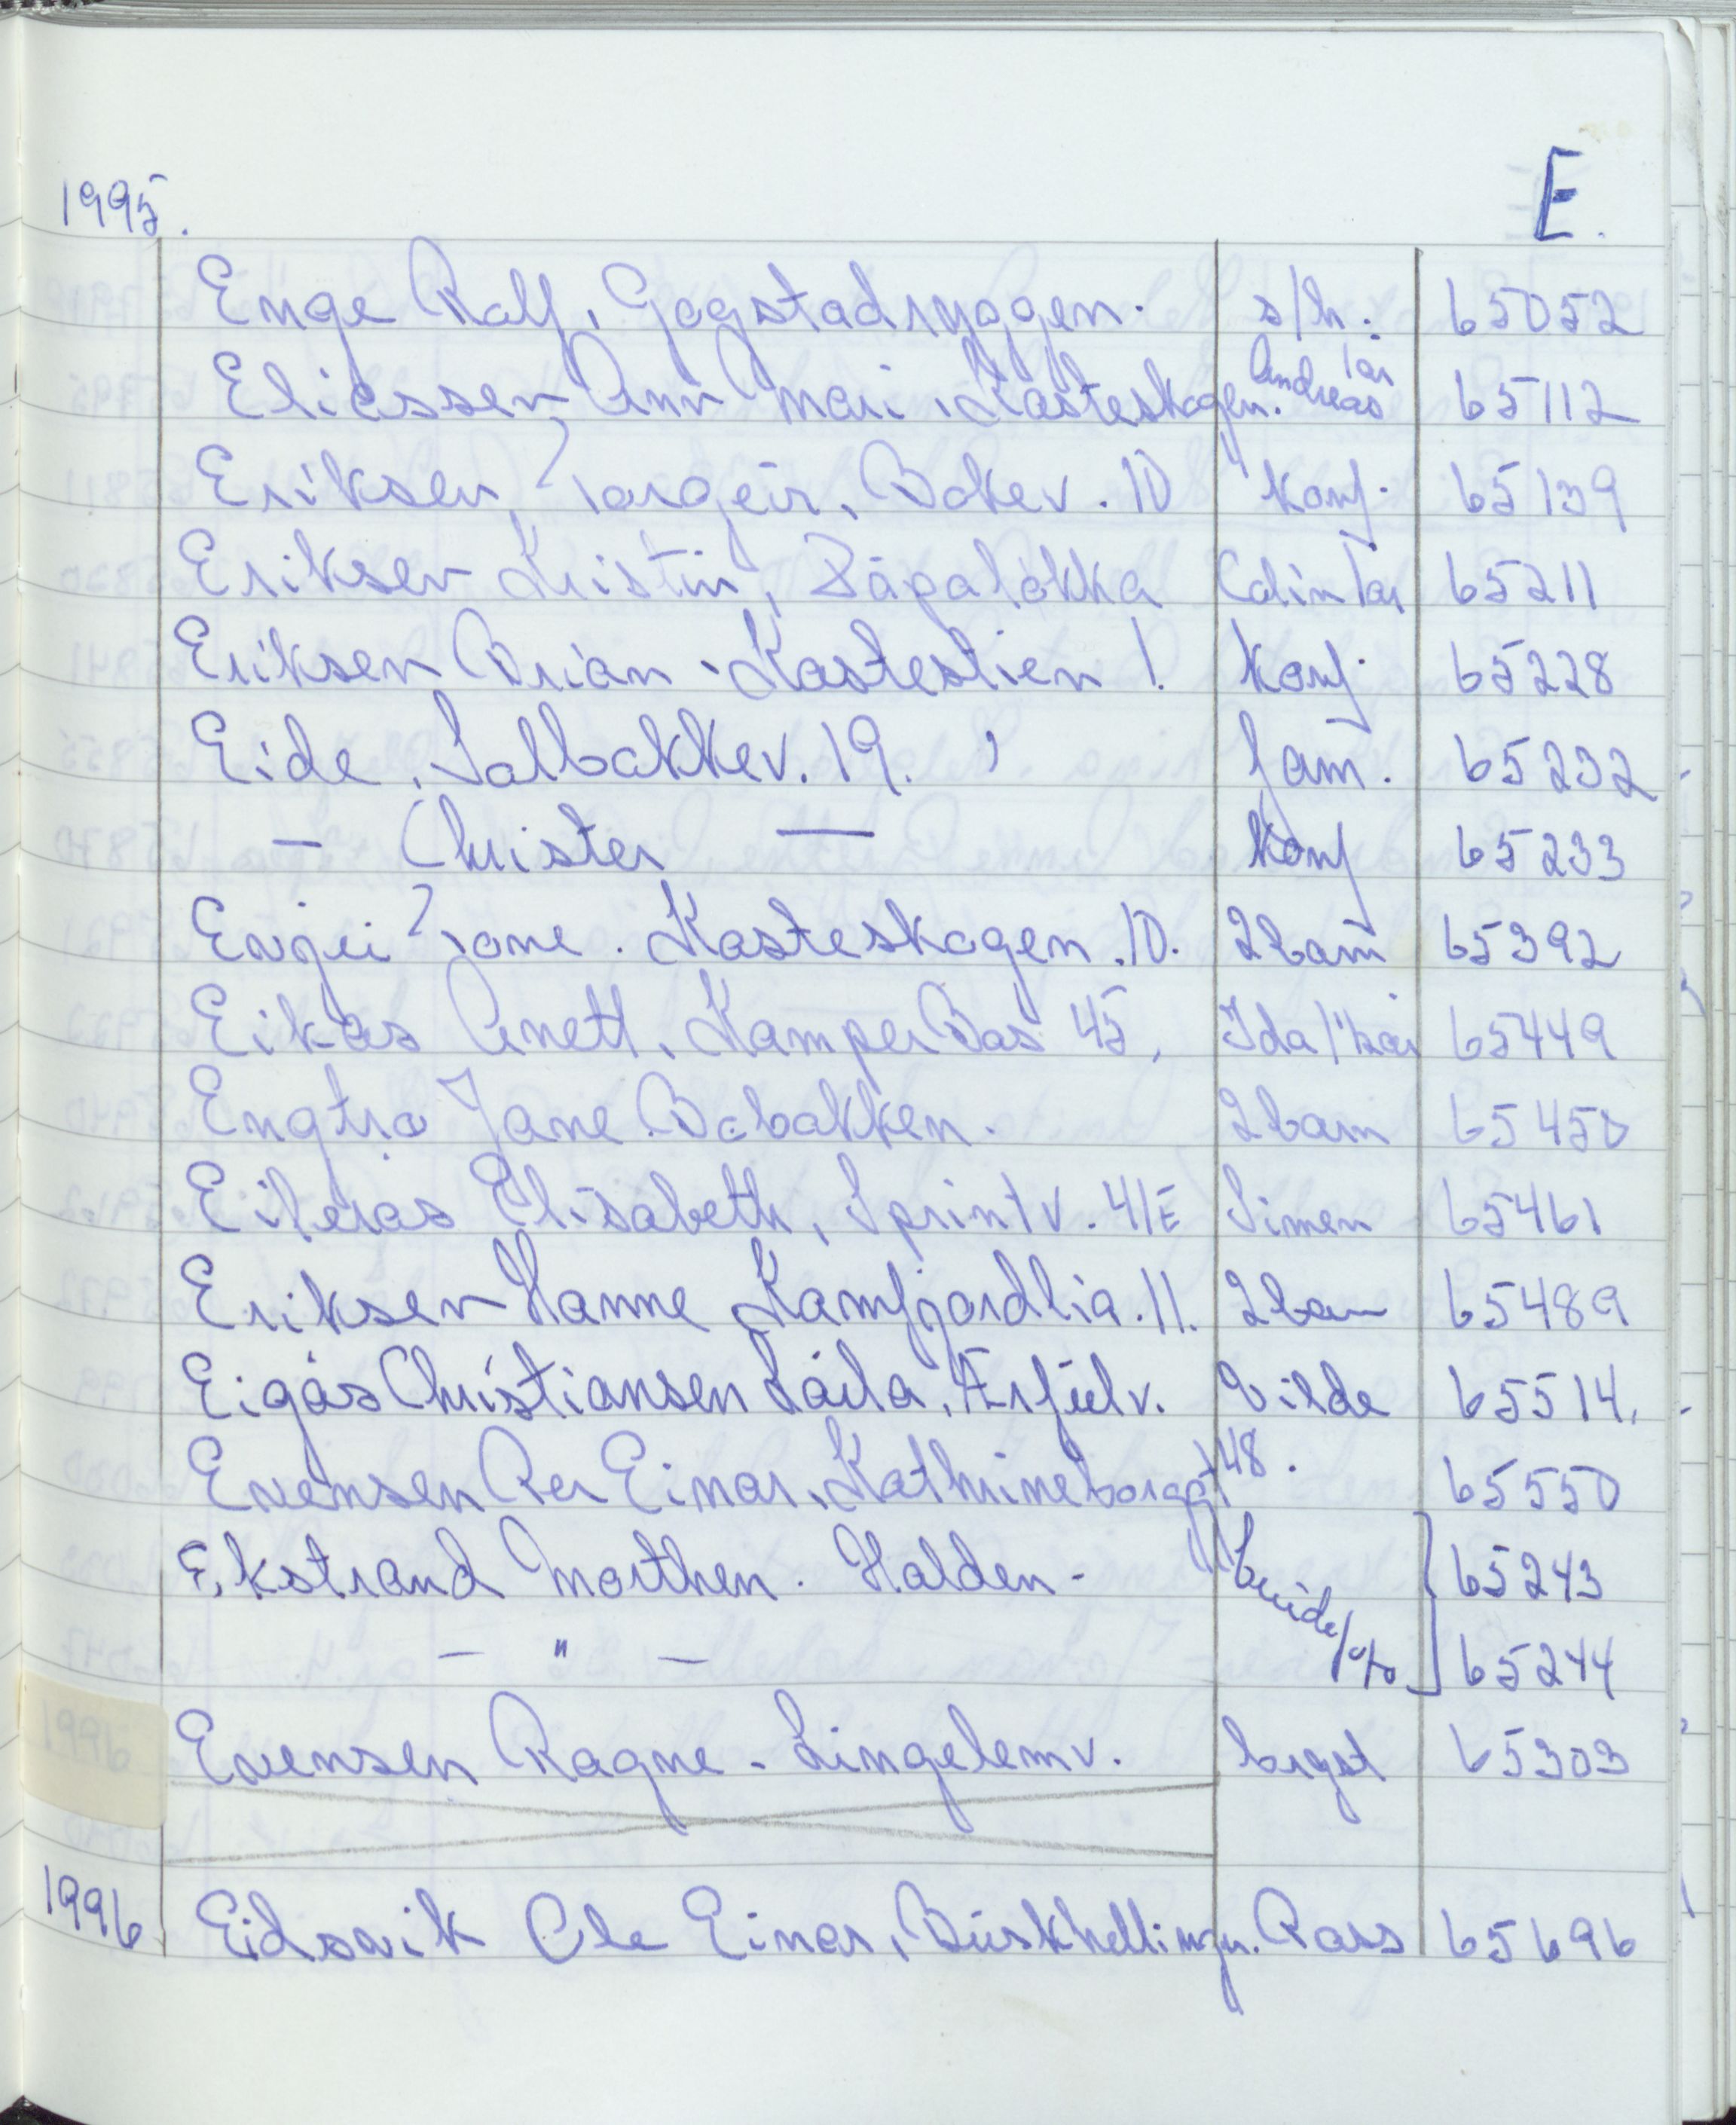 1995. E.
Enge Ralf, Gogstadryggen. s/h. 65052
Eliassen Ann Mari, Kasteskogen. Andreas 1år 65112
Eriksen, Torgeir, Bakev. 10 konf. 65139
Eriksen Kristin, Såpaløkka Colin 1år 65211
Eriksen Brian, Kastestien 1. konf. 65228
Eide, Solbakkev. 19. fam. 65232
— Christer — konf 65233
Tone. Kasteskogen. 10. 2barn 65392
Eikås Anett, Kamperåas 45, Ida 65449
Engtrø Jane Bøbakken. 2barn 65450
Eiferås Elisabeth, Sprintv. 41E Simen 65461
Eriksen Hanne Kamfjordlia. 11. 2barn 65489
Eigås Christiansen Laila, Ærfuglv. Vilde 65514.
Evensen Per Einar, Kathrineborggt 48. 65550
Ekstrand Morthen. Halden - 65243
— " — 65244
Evensen Ragne - Lingelemv. brgst 65303
1996 Eidsvik Ole Einar, Pass 65696